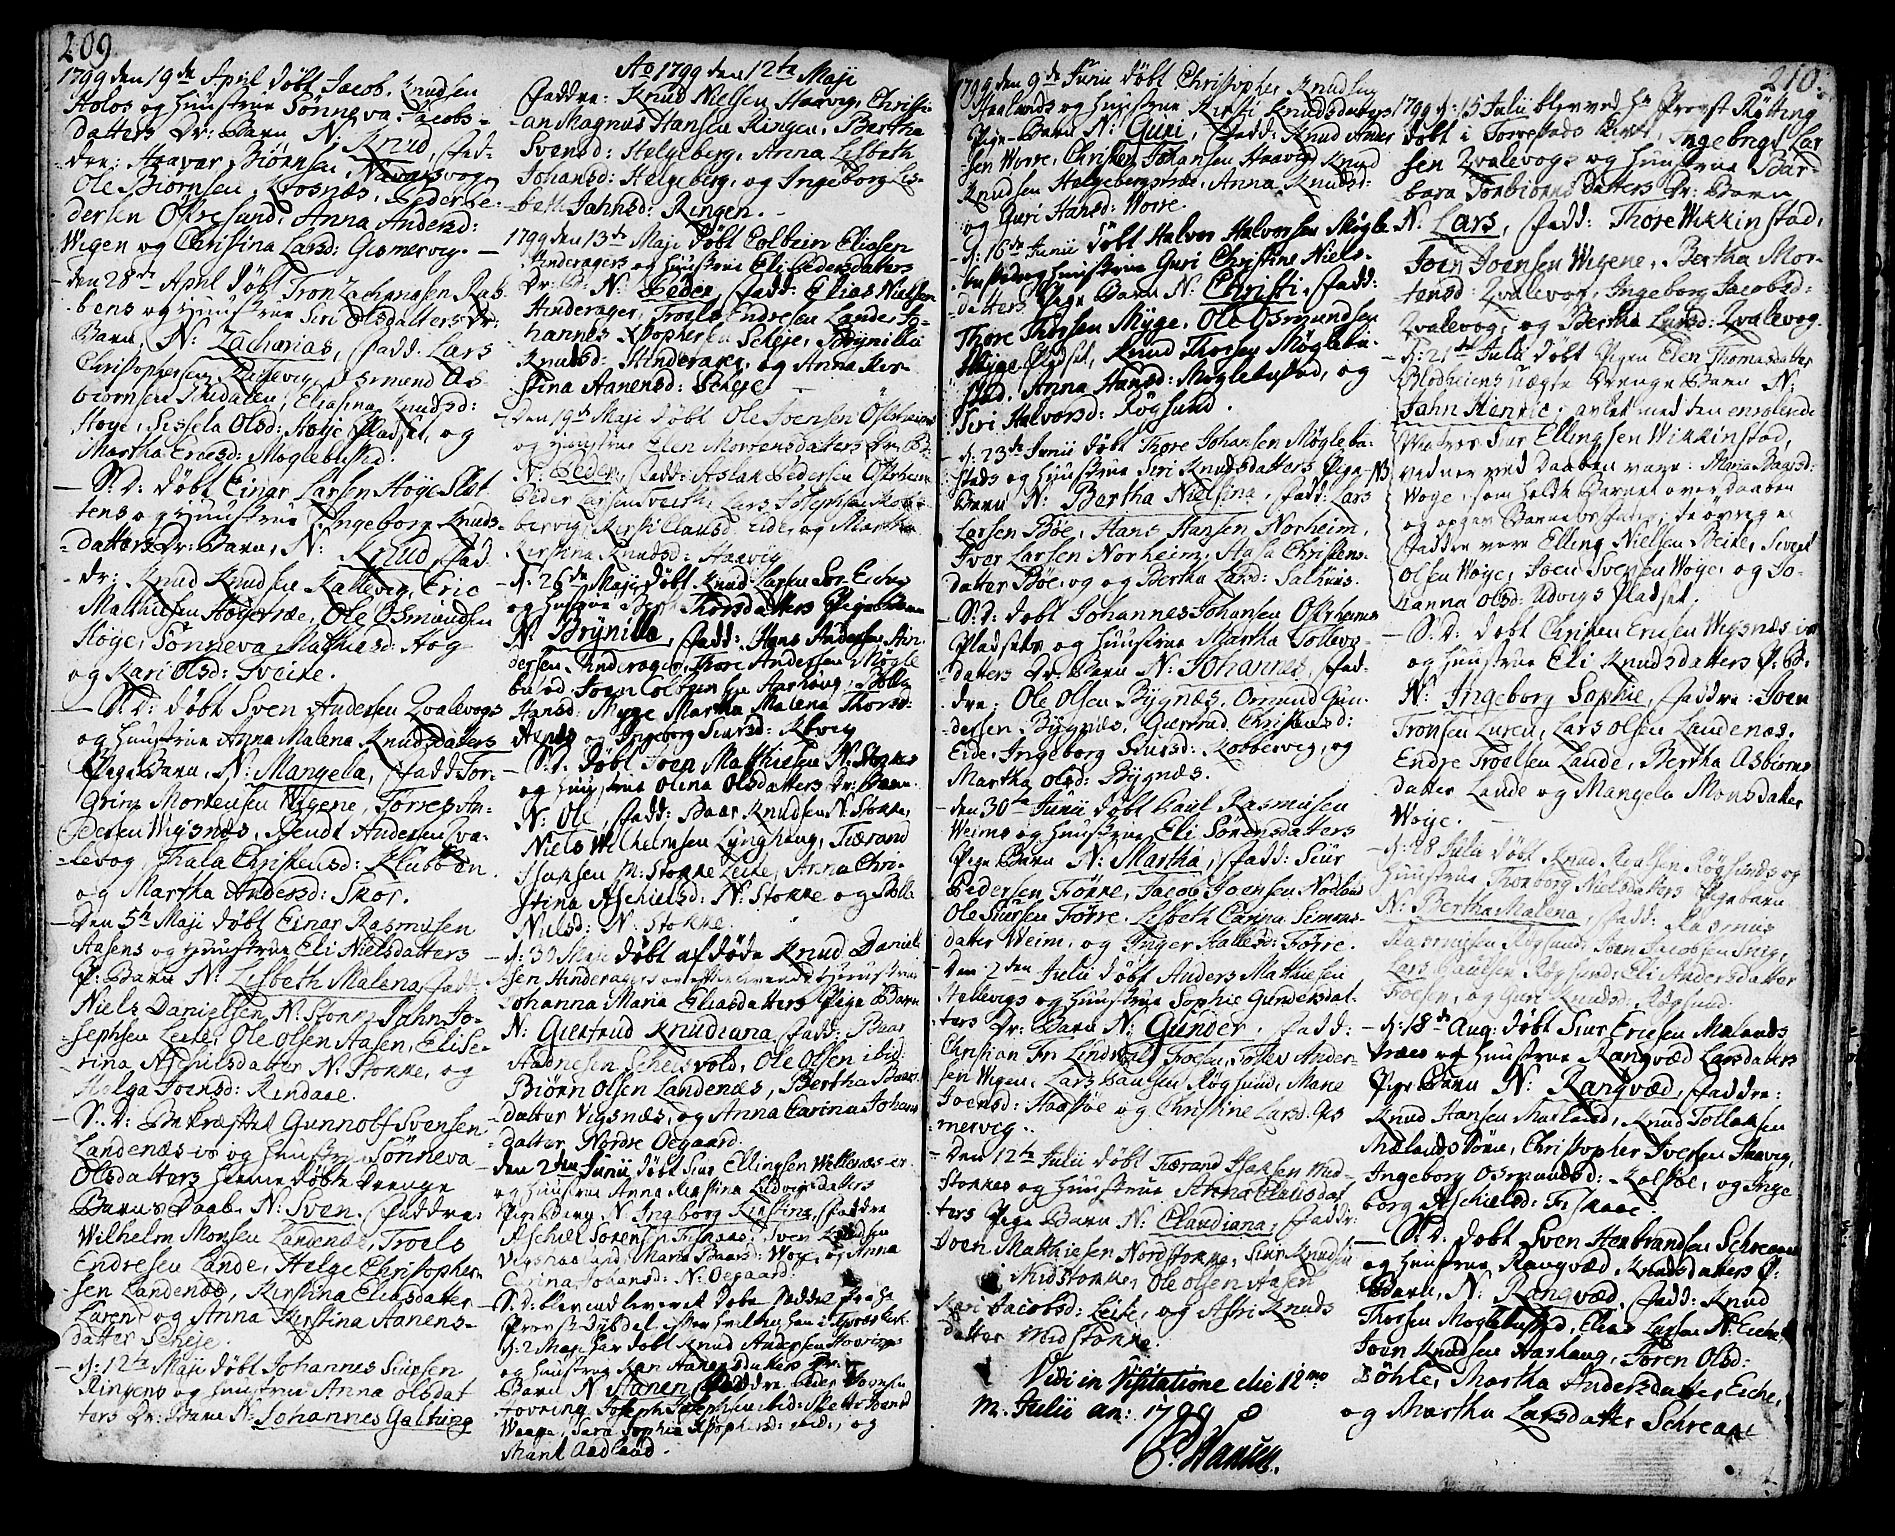 209.
1799 den 19de April döbt Jacob Knudsen
Holos og Huustrue Sönneva Jacobs-
datters Dr: Barn N: Knud, Fad-
dre: Haavar Biörnsen,
Ole Biörnsen Krosnæs, Peder Pe-
dersen Östresund, Anna Andersd:
Wigen og Christina Larsd: Gismervig. -
- den 28de April döbt Tron Zachariasen Ras-
bens og Huustrue Siri Olsdatters Dr:
Barn, N: Zacharias, Fadd: Lars
Christophersen Kallevig, Osmund As-
biörnsen Rusdalen, Eliasina Knudsd:
Höye, Sissela Olsd: Höye Pladset, og
Martha Ericsd: Möglebustad.
- S: D: döbt Einar Larsen Höye Slet-
tens og Huustrue Ingeborg Knuds-
datters Dr: Barn, N: Knud, Fad-
dr: Knud Knudsen Kallevig, Eric
Matthiesen Höyetræe, Ole Osmundsen
Höye, Sönneva Mathiasd: Höy
og Kari Olsd: Sveike.
- S: D: döbt Sven Andersen Qvalevogs
og Huustrue Anna Malena Knudsdatters
Pige Barn, N: Mangela, Fadd: Tor-
grim Mortensen Wigene, Törres An-
dersen Wigsnæs, Bendt Andersen Qva-
levog, Thala Christensd: Klubben
og Martha Andersd: Skor.
- Den 5te Maji döbt Einar Rasmusen
Aasens og Huustrue Eli Nielsdatters
P: Barn N: Lisbeth Malena, Fadd:
Niels Danielsen N: Stokke, Jahn Jo-
sephsen Leite, Ole Olsen Aasen, Elise-
rina Aschilsdatter N: Stokke, og
Helga Joensd: Rendaae.
- S: D: Bekræftet Gunnolf Svensen
Landenæs ivr og Huustrue Sönneva
Olsdatters hiemedöbte Drenge
Barns Daab N: Sven. Faddre:
Wilhelm Monsen Landenæs, Troels
Endresen Lande, Helge Christopher-
sen Landenæs, Kirstina Eliasdatter
Luren, og Anna Kirstina Aanens-
datter Scheje.
- d: 12te Maji döbt Johannes Siursen
Ringens og Huustrue Anna Olsdat-
ters Dr: Barn N: Johannes Galtung
Ao 1799 den 12te Maji
Faddre: Knud Nielsen Haavig, Christi-
an Magnus Hansen Ringen, Bertha
Svensd: Helgeberg, Anna Lisbeth
Johansd: Helgeberg, og Ingeborg Lis-
beth Jahnsd: Ringen. -
1799 den 13de Maji döbt Colbein Eliasen
Hinderagers og Huustrue Eli Pedersdatters
Dr: B: N: Peder, Fadd: Elias Nielsen
Hinderager, Troels Endresen Lande, Jo-
hannes Xstophersen Scheje, Brynilla
Knudsd: Hinderager, og Anna Kir-
stina Aanensd: Scheje.
- den 19de Maji döbt Ole Joensen Östrheims
og Huustrue Elen Mortensdatters Dr: B:
N: Peder, Fadd: Aslak Pedersen Östrheim
Peder Larsen Lars Johannesen Kob-
bervig, Kirsti Clausd: Eide, og Martha
Kirstina Knudsd: Haavig
- d: 26de Maji döbt Knud Larsen Sör Eiches
og Hustrue Thorsdatters Pige Barn
N: Brynilla, Fadd: Hans Andersen Hin-
derager, Thore Andersen Mögle-
bustad, Joen Colbensen Aarhoug, Bolla
Hansd: Myge, Martha Malena Thors-
og Ingeborg Siursd: Rövig
- S: D: döbt Joen Matthiesen N: Stokkes
og Huustrue Olena Olsdatters Dr: Barn
N: Ole, Fadd: Baar Knudsen N: Stokke,
Niels Wilhelmsen Lynghoug, Tiærand
Isaksen M: Stokke Leite, Anna Chri-
stina Aschielsd: N: Stokke og Bolla
Nielsd: N: Stokke.
- d: 30 Maji döbt afdöde Knud Daniel-
sen Hinderagers og efterlevende Huustrue
Johanna Maria Eliasdatters Pige Barn
N: Giertrud Knudiana, Fadd: Baar
Aadnesen Scheisvold, Ole Olsen ibid:
Biörn Olsen Landenæs, Bertha Baars-
datter Vigsnæs, og Anna Carina Johans-
datter Nordre Oegaard.
den 2den Junii döbt Siur Ellingsen Wikenæs ivr
og Huustrue Anna Kirstina Ludvigsdatters
Pigebarn N: Ingborg Kirstina, Faddre
Aschiel Sörensen Fiskaae, Sven Knudsen
Vigsnæs, Maria Baarsd: Woje, og Anna
Carina Johansd: N: Oegaard.
- S: D: blev indleveret Döbe Seddel fra Hr
Provst Dybdal, efter hvilken han i Kirke
d: 2 Maji har döbt Knud Andersen Hovrings
og Huustrue Kari Aanensdatters Dr:
Barn N: Aanen, Faddre: Peder Biörnsen
Hovring, Joseph Josephsen ibid:
Waage, Sara Sophia Xstophersd: ibid: og
Marit Aadland.
210.
1799 den 9de Junii döbt Christopher Knudsen
Haalands og Huustrue Kirsti Knudsdatters
Pige Barn N: Guri, Fadd: Knud Aner-
sen Worre, Christen Johansen Haavig, Knud
Knudsen Helgebergstræe, Anna Knudsd:
og Guri Hansd: Worre.
- d: 16de Junii döbt Halvor Halvorsen Mögle-
bustad og Huustrue Guri Christine Niels-
datters Pige Barn N: Christi, Fadd:
Thore Thorsen Myge, Ole Osmundsen
Myge Pladset, Knud Thorsen Möglebu-
stad, Anna Hansd: Möglebustad, og
Siri Halvorsd: Rögsund.
- d: 23de Junii döbt Thore Johansen Möglebu-
stads og Huustrue Siri Knudsdatters Pige
Barn N: Bertha Nielsina, Fadd: Lars
Larsen Böe, Hans Hansen Norheim,
Iver Larsen Norheim, Aasa Christens-
datter Böe, og Bertha Larsd: Salhuus.
- S: D: döbt Johannes Johansen Östrheims
Pladsets og Huustrue Martha Tollevs-
datters Dr: Barn N: Johannes, Fad-
dre: Ole Olsen Bygnæs, Osmund Gun-
dersen Bygnæs, Giertrud Christensd:
Eide, Ingeborg Siursd: Kobbervig, og
Martha Olsd: Bygnæs.
- den 30te Junii döbt Poul Rasmusen
Weims og Huustrue Eli Sörensdatters
Pige Barn N: Martha, Fadd: Siur
Pedersen Förre, Jacob Joensen Nodland
Ole Siursen Förre, Lisbeth Carina Simons-
datter Weim, og Inger Hallesd: Förre.
- Den 7den Julii döbt Anders Mathiesen
Hellevigs og Huustrue Sophie Gundersdat-
ters Dr: Barn N: Gunder. Fadd:
Christian Fr: Lindvall Froesen, Tollev Ander-
sen Wigen, Lars Paulsen Rögsund, Marie
Joensd: Haastöe og Christine Larsd: Gis-
mervig.
- Den 12te Julii döbt Tiærand Isaksen Mid-
stokkes og Huustrue Anna Clausdat-
ters Pige Barn N: Claudiana, Faddr:
Joen Matthiesen Nordstokke, Siur Knudsen
Midstokke, Ole Olsen Aasen
Kari Jacobsd: Leite, og Astri Knuds
datter Midstokke.
Vidi in Visitatione die 12mo
M: Julii an: 1799
P: Hansen.
1799 d: 15 Julii blev ved Hr Provst Rötting
döbt i Torvestads Kirke, Ingebrigt Lar-
sen Qvalevogs og Huustrue Bar-
bara Torbiörnsdatters Dr: Barn
N: Lars, Fadd: Thore Wikkinstad,
Joen Joensen Wigene, Bertha Mor-
tensd: Qvalevog, Ingeborg Jacobsd:
Qvalevog, og Bertha Larsd: Qvalevog.
- d: 21de Julii döbt Pigen Elen Thomasdatter
Blodheiens uægte Drenge Barn N:
Jahn Henric, avlet med den enrolerede
Matros Siur Ellingsen Wikkinstad,
vidner ved daaben vare: Maria Baarsd:
Woge, som holdt Barnet over daaben
og opgav Barnefaderen, de övrige
Faddre vare Elling Nielsen Beite, Sivert
Olsen Woge, Joen Svensen Woge, og Jo-
hanna Olsd: Udvigs Pladset.
NB
- S: D: döbt Christen Ericsen Wigsnæs ivr
og Huustrue Eli Knudsdatters P: B:
N: Ingeborg Sophie, Faddre: Joen
Tronsen Luren, Lars Olsen Landenæs,
Endre Troelsen Lande, Bertha Asbiörns-
datter Lande og Mangela Monsdatter
Woje.
- d: 28 Julii döbt Knud Roalsen Rögsunds og
Huustrue Thorborg Nielsdatters Pigebarn
N: Bertha Malena, Fadd: Rasmus
Rasmusen Rögsund, Joen Jacobsen
Lars Paulsen Rögsund, Eli Andersdatter
Froesen, og Guri Knudsd: Rögsund
- d: 18de Aug: döbt Siur Ericsen Mælands
træes og Huustrue Rangvæd Larsdatters
Pige Barn N: Rangvæd, Faddre:
Knud Hansen Mæland, Knud Tollaksen
Mælands Törne, Christopher Iversen Haavig,
Ingeborg Osmundsd: Kolstöe, og Inge-
borg Aschielsd: Fiskaae.
- S: D: döbt Sven Henbrandsen Schreaane
og Huustrue Rangvæd Knudsdatters P:
Barn, N: Rangvæd, Fadd: Knud
Thorsen Möglebustad, Elias Larsen N: Eiche,
Joen Knudsen Aarhaug, Joren Olsd:
Böhle, Martha Andersdatter Eiche,
og Martha Larsdatter Schreaane